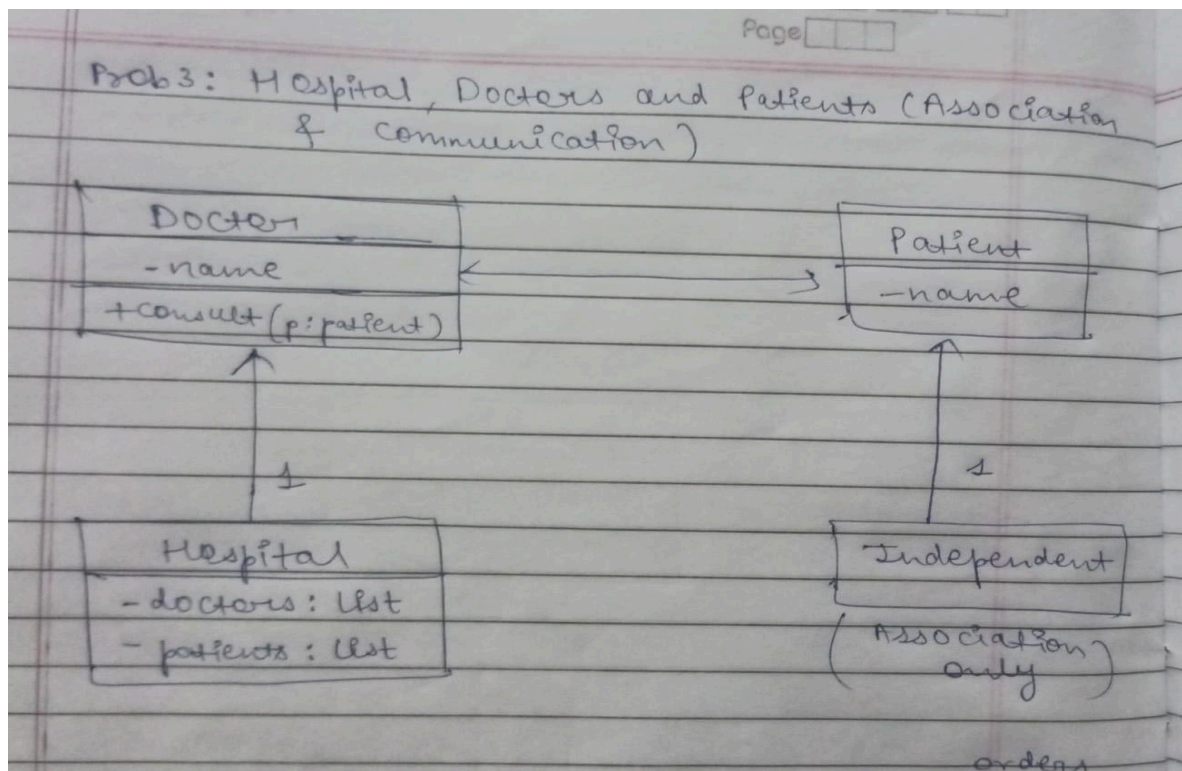 Page
Prob 3: Hospital, Doctors and Patients (Association
& communication)
Doctor
-name
+consult (p: patient)
Patient
-name
1
1
Hospital
- doctors: list
- patients: list
Independent
(Association
only)
orders